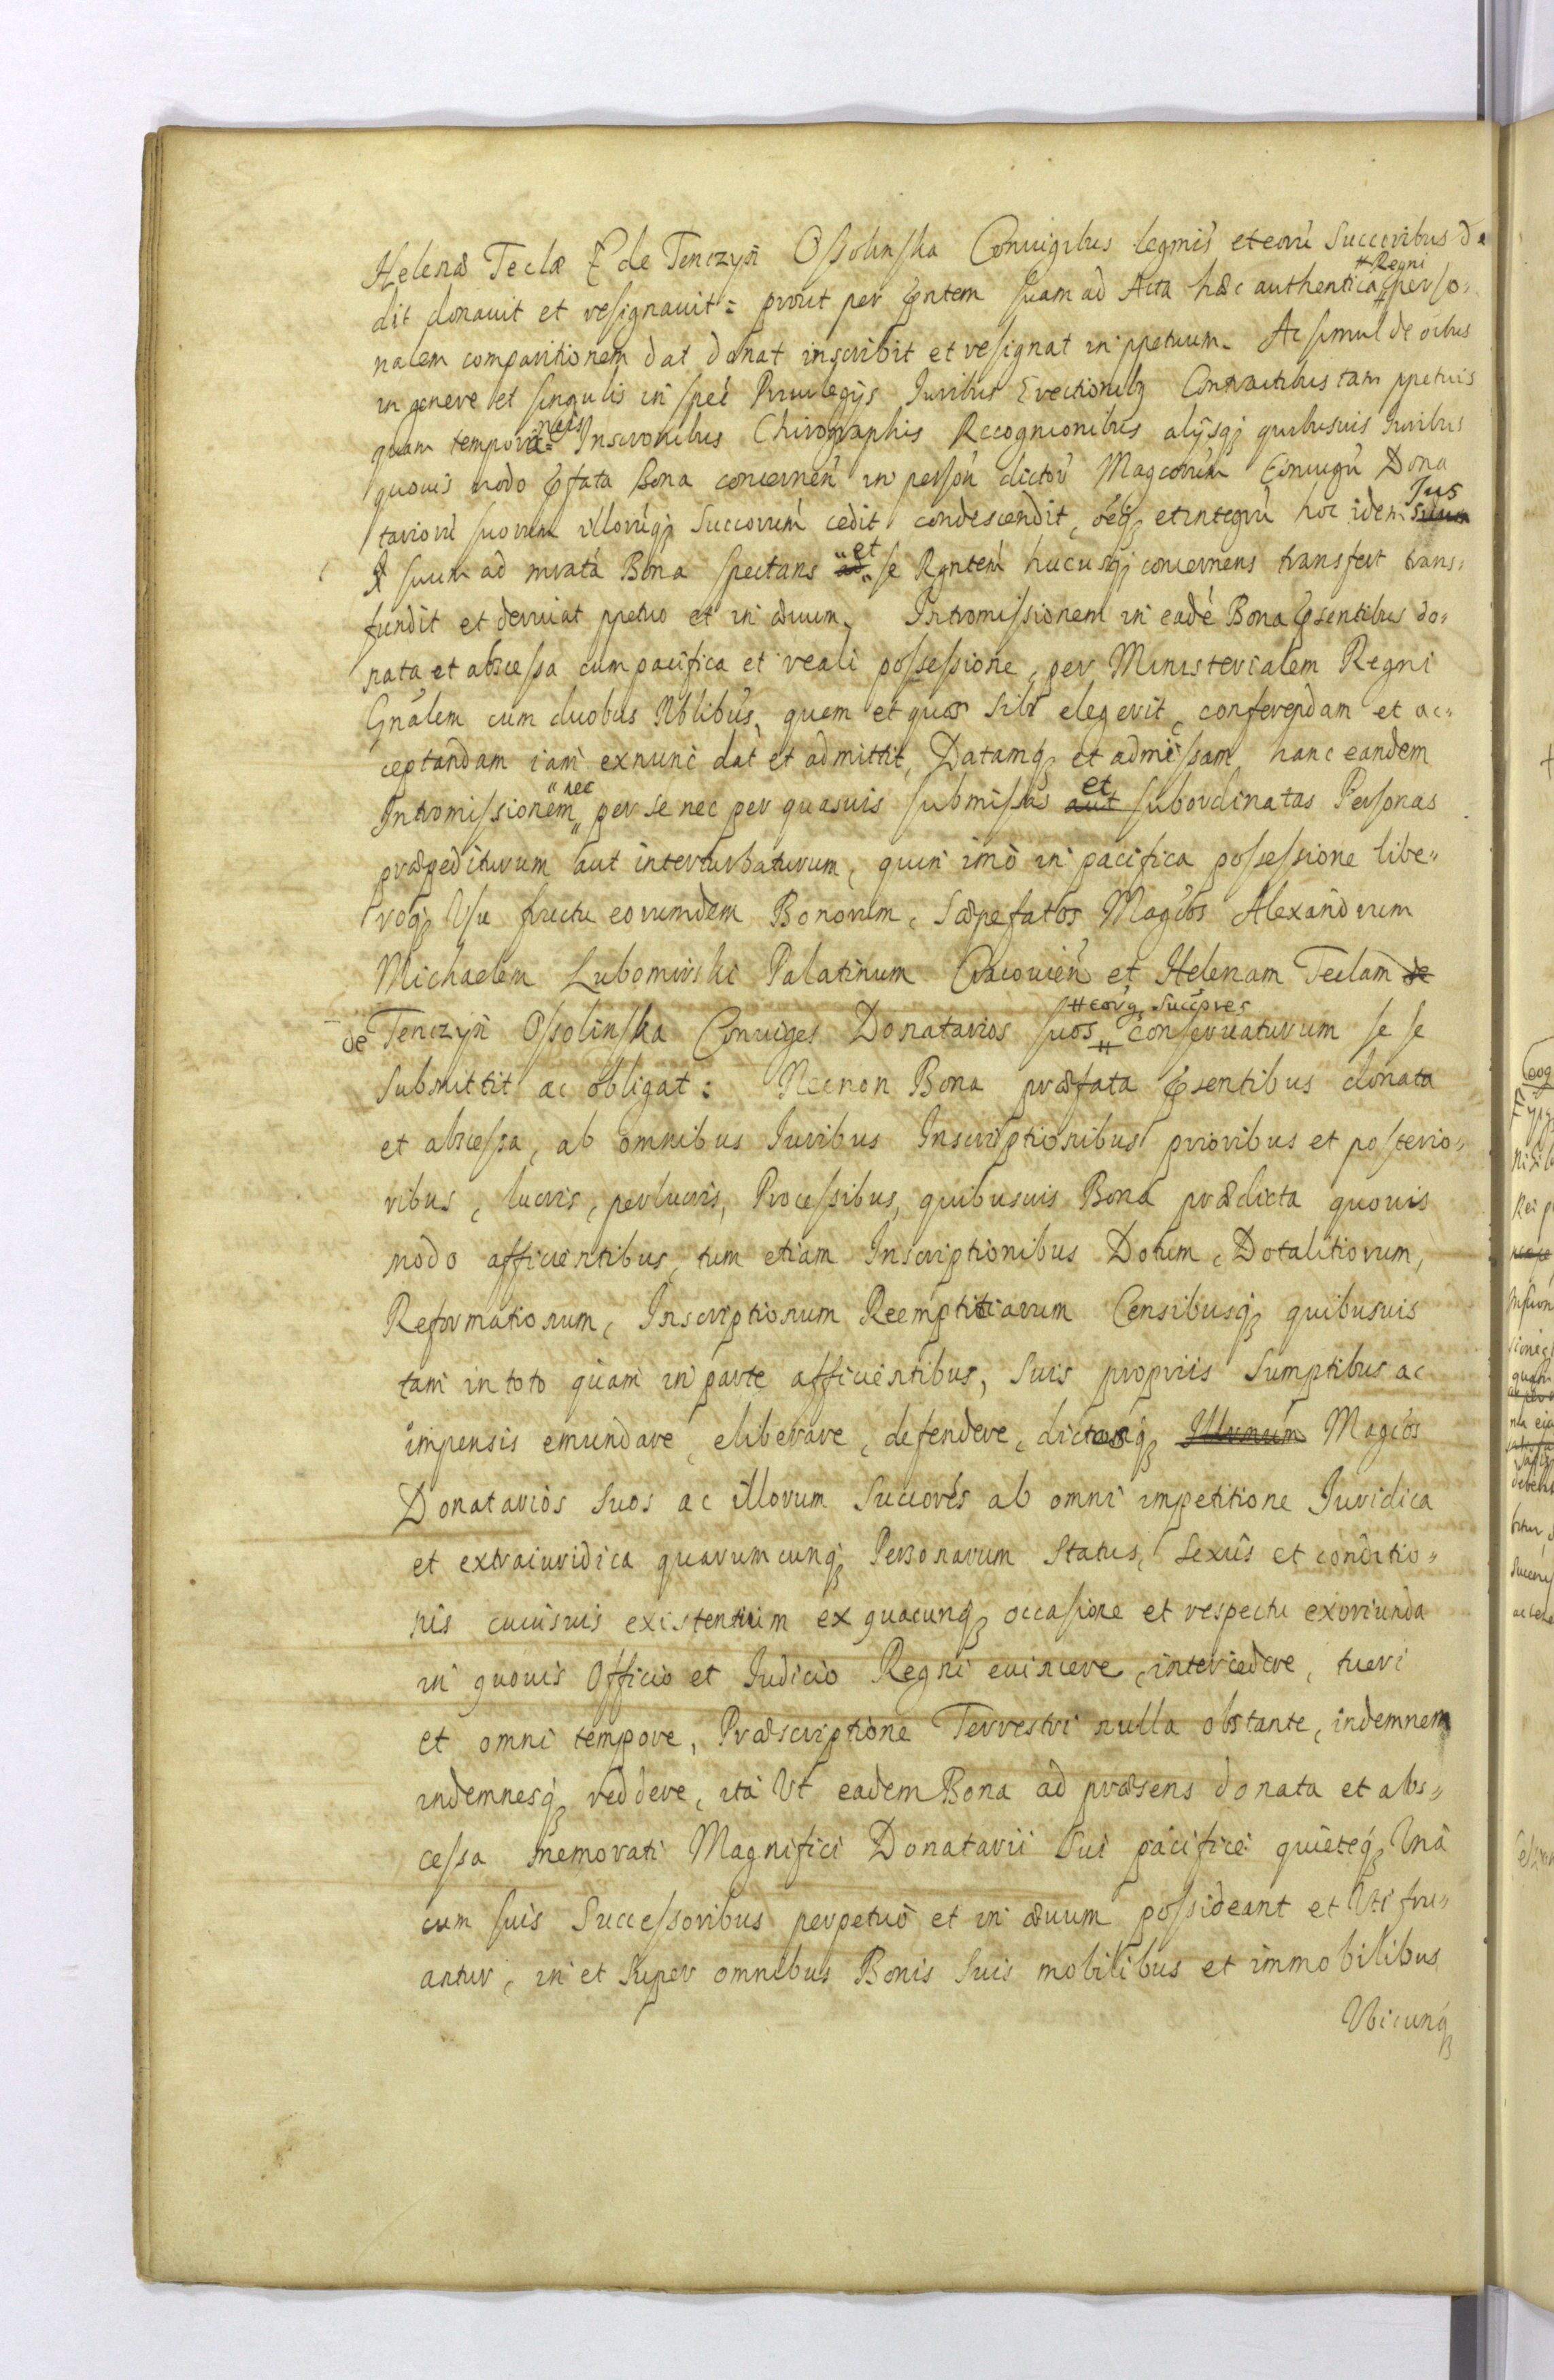 Helenæ Teclæ de Tenczyn Ossolinska Coniugibus legmis et eorū Succoribus de
dit donauit et resignauit: prout per pntem suam ad Acta hæc authentica Regni perso-
nalem comparitionem dat donat inscribit et resignat in ppetuum. Ac simul de oibus
in genere et singulis in spe Priuilegijs Iuribus Erectionibq Contractibus tam ppetuis
quam temporaneis Inscronibus Chirographis Recognionibus alijsq quibusuis Iuribus
quouis modo pfata Bona concernen in person dictor Magcorum Coniugū Dona
tariorū suorum illorūq Succorum cedit condescendit, et integrū hoc idem Ius
suum ad mrata Bona spectans et se Rgntem hucusq concernens transfert trans-
fundit et deriuat ppetuo et in æuum. Intromissionem in eadē Bona psentibus do-
nata et abscessa cum pacifica et reali possessione, per Ministerialem Regni
Gnalem cum duobus Nblibus, quem et quos sibi elegerit, conferendam et ac-
ceptandam iam exnunc dat et admittit, Datamq et admissam, hanc eandem
Intromissionem nec per se nec per quasuis submissas aut et subordinatas Personas
præpediturum aut interturbaturum, quin imò in pacifica possessione libe-
roq Vsu fructu eorumdem Bonorum, Sæpefatos Magcos Alexandrum
Michaelem Lubomirski Palatinum Cracouien et Helenam Teclam de
de Tenczyn Ossolinska Coniuges Donatarios suos eorq Succores conseruaturum se se
submittit ac obligat: Necnon Bona præfata psentibus donata
et abscessa, ab omnibus Iuribus Inscriptionibus prioribus et posterio-
ribus, lucris, perlucris, Processibus, quibusuis Bona prædicta quouis
modo afficientibus, tum etiam Inscriptionibus Dotum, Dotalitiorum,
Reformationum, Inscriptionum Reemptitiarum Censibusq quibusuis
tam in toto quam in parte afficientibus, Suis propriis Sumptibus ac
impensis emundare, eliberare, defendere, dictosq Magcos
Donatarios Suos ac illorum Succores ab omni impetitione Iuridica
et extraiuridica quarumcunq Personarum Status, Sexûs et conditio-
nis cuiusuis existentium ex quacunq occasione et respectu exoriunda
in quouis Officio et Iudicio Regni euincere, intercedere, tueri
et omni tempore, Præscriptione Terrestri nulla obstante, indemnem
indemnesq reddere, ità Vt eadem Bona ad præsens donata et abs-
cessa memorati Magnifici Donatarii Sui pacificè quieteq Vnà
cum suis Successoribus perpetuò et in æuum possideant et Vti fru-
antur, in et super omnibus Bonis Suis mobilibus et immobilibus
Vbicunq